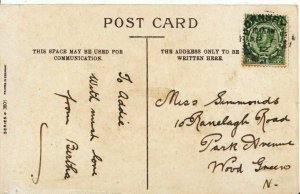 POST CARD
THIS SPACE MAY BE USED FOR
COMMUNICATION.
THE ADDRESS ONLY TO BE
WRITTEN HERE.
To Addie
With much love
from Bertha
Miss Simmonds
10 Ranelagh Road
Park Avenue
Wood Green
N.